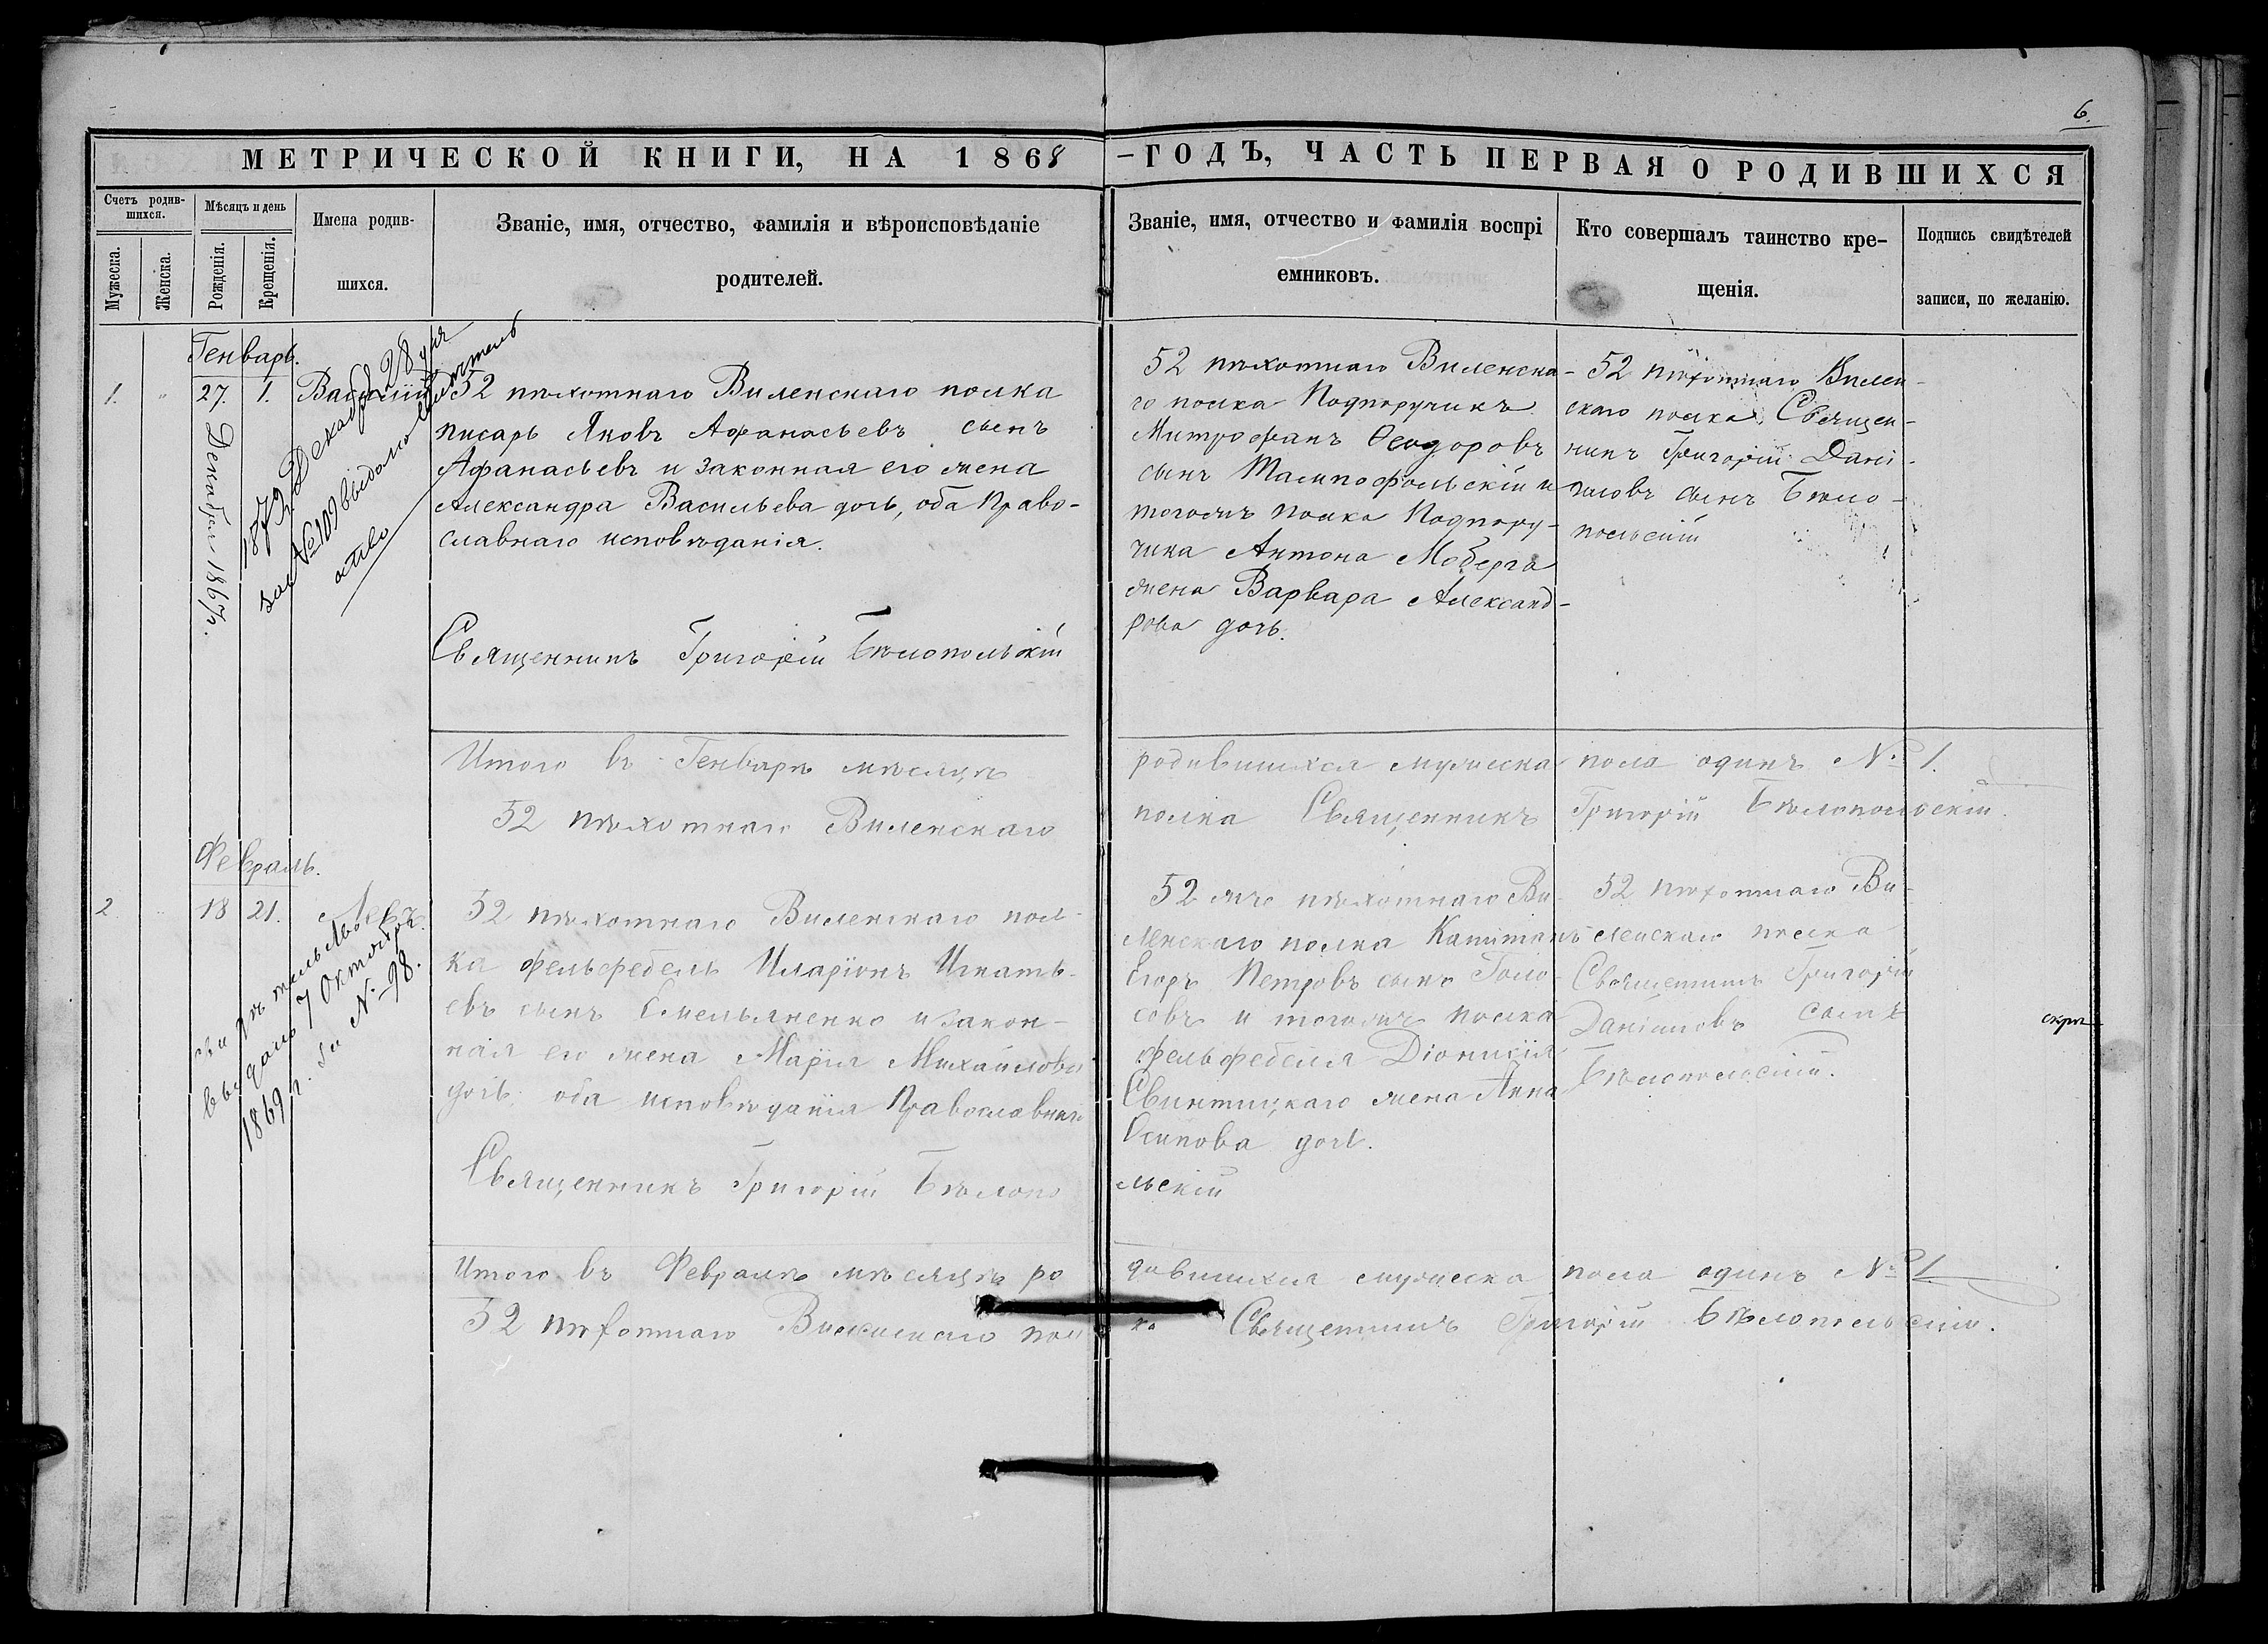 6.
МЕТРИЧЕСКОЙ КНИГИ, НА 1868
–ГОДЪ, ЧАСТЬ ПЕРВАЯ О РОДИВШИХСЯ
Счетъ родив-
шихся.
Мужеска.
Женска.
Мѣсяцъ и день
Рожденія.
Крещенія.
Имена родив-
шихся.
Званіе, имя, отчество, фамилія и вѣроисповѣданіе
родителей.
Званіе, имя, отчество и фамилія воспрі
емниковъ.
Кто совершалъ таинство кре-
щенія.
Подпись свидѣтелей
записи, по желанію.
Генварь.
1.
27.
Декабря 1867 г.
1.
Василій
1879 Декабря 28 дня
за № 109 выдано свидѣтель
ство
52 пѣхотнаго Виленскаго полка
писарь Яковъ Афанасьевъ сынъ
Афанасьевъ и законная его жена
Александра Васильева дочь, оба Право-
славнаго исповѣданія.
Священникъ Григорій Бѣлопольскій
52 пѣхотнаго Виленска-
го полка Подпоручикъ
Митрофанъ Ѳеодоровъ
сынъ и
тогожъ полка Подпору-
чика Антона Моберга
жена Варвара Александ-
рова дочь.
52 пѣхотнаго Вилен-
скаго полка Священ-
никъ Григорій Дані-
иловъ сынъ Бѣло-
польскій
Итого въ Генварѣ мѣсяцѣ
родившихся мужеска пола одинъ № 1.
52 пѣхотнаго Виленскаго
полка Священникъ Григорій Бѣлопольскій.
Февраль.
2
18
21.
Левъ
выдано 7 Октября
1869 г. за № 98.
52 пѣхотнаго Виленскаго пол-
ка фельдфебель Иларіонъ Игнать-
евъ сынъ Емельяненко и закон-
ная его жена Марія Михайлова
дочь, оба исповѣданія Православнаго
Священникъ Григорій Бѣлопо
льскій
52 го пѣхотнаго Ви-
ленскаго полка Капитанъ
Егоръ Петровъ сынъ Голо-
совъ и тогожъ полка
фельдфебеля Діонисія
Свинтицкаго жена Анна
Осипова дочь.
52 пѣхотнаго Ви-
ленскаго полка
Священникъ Григорій
Даніиловъ сынъ
Бѣлопольскій.
скрѣ
Итого въ Февралѣ мѣсяцѣ ро
дившихся мужеска пола одинъ № 1
52 пѣхотнаго Виленскаго пол
ка Священникъ Григорій Бѣлопольскій.